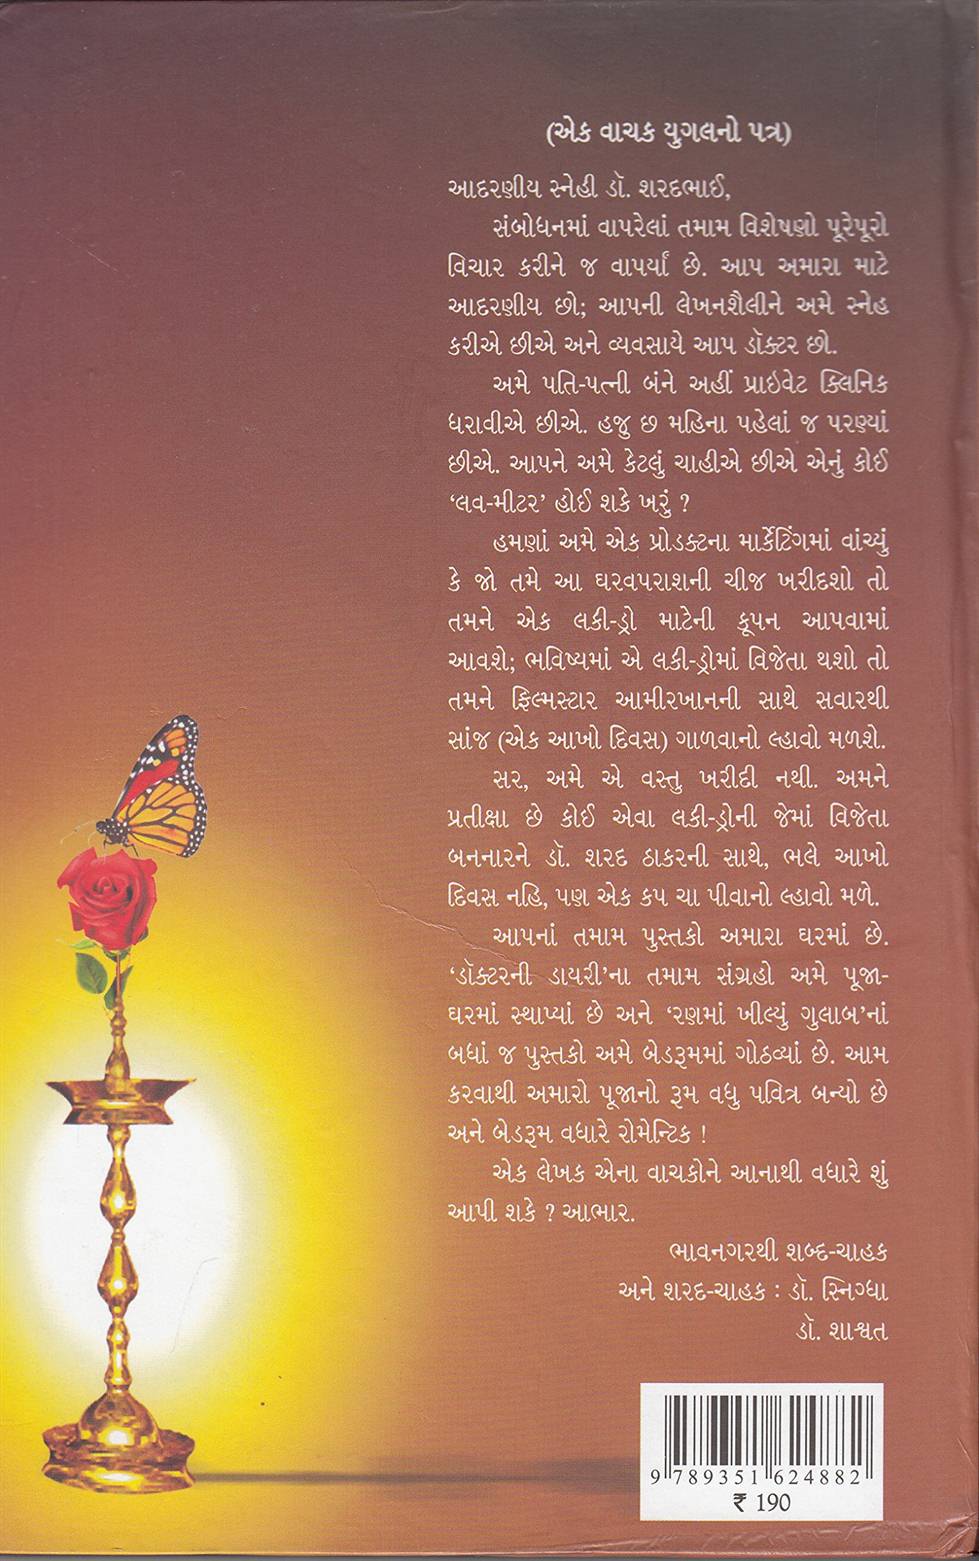 (એક વાચક યુગલનો પત્ર)
આદરણીય સ્નેહી ડૉ. શરદભાઈ,
સંબોધનમાં વાપરેલાં તમામ વિશેષણો પૂરેપૂરો
વિચાર કરીને જ વાપર્યાં છે. આપ અમારા માટે
આદરણીય છો; આપની લેખનશૈલીને અમે સ્નેહ
કરીએ છીએ અને વ્યવસાયે આપ ડૉક્ટર છો.
અમે પતિ-પત્ની બંને અહીં પ્રાઇવેટ ક્લિનિક
ધરાવીએ છીએ. હજુ છ મહિના પહેલાં જ પરણ્યાં
છીએ. આપને અમે કેટલું ચાહીએ છીએ એનું કોઈ
‘લવ-મીટર’ હોઈ શકે ખરું ?
હમણાં અમે એક પ્રોડક્ટના માર્કેટિંગમાં વાંચ્યું
કે જો તમે આ ઘરવપરાશની ચીજ ખરીદશો તો
તમને એક લકી-ડ્રો માટેની કૂપન આપવામાં
આવશે; ભવિષ્યમાં એ લકી-ડ્રોમાં વિજેતા થશો તો
તમને ફિલ્મસ્ટાર આમીરખાનની સાથે સવારથી
સાંજ (એક આખો દિવસ) ગાળવાનો લ્હાવો મળશે.
સર, અમે એ વસ્તુ ખરીદી નથી. અમને
પ્રતીક્ષા છે કોઈ એવા લકી-ડ્રોની જેમાં વિજેતા
બનનારને ડૉ. શરદ ઠાકરની સાથે, ભલે આખો
દિવસ નહિ, પણ એક કપ ચા પીવાનો લ્હાવો મળે.
આપનાં તમામ પુસ્તકો અમારા ઘરમાં છે.
‘ડૉક્ટરની ડાયરી’ના તમામ સંગ્રહો અમે પૂજા-
ઘરમાં સ્થાપ્યાં છે અને ‘રણમાં ખીલ્યું ગુલાબ’નાં
બધાં જ પુસ્તકો અમે બેડરૂમમાં ગોઠવ્યાં છે. આમ
કરવાથી અમારો પૂજાનો રૂમ વધુ પવિત્ર બન્યો છે
અને બેડરૂમ વધારે રોમેન્ટિક !
એક લેખક એના વાચકોને આનાથી વધારે શું
આપી શકે ? આભાર.
ભાવનગરથી શબ્દ-ચાહક
અને શરદ-ચાહક : ડૉ. સ્નિગ્ધા
ડૉ. શાશ્વત
9 789351 624882
₹ 190